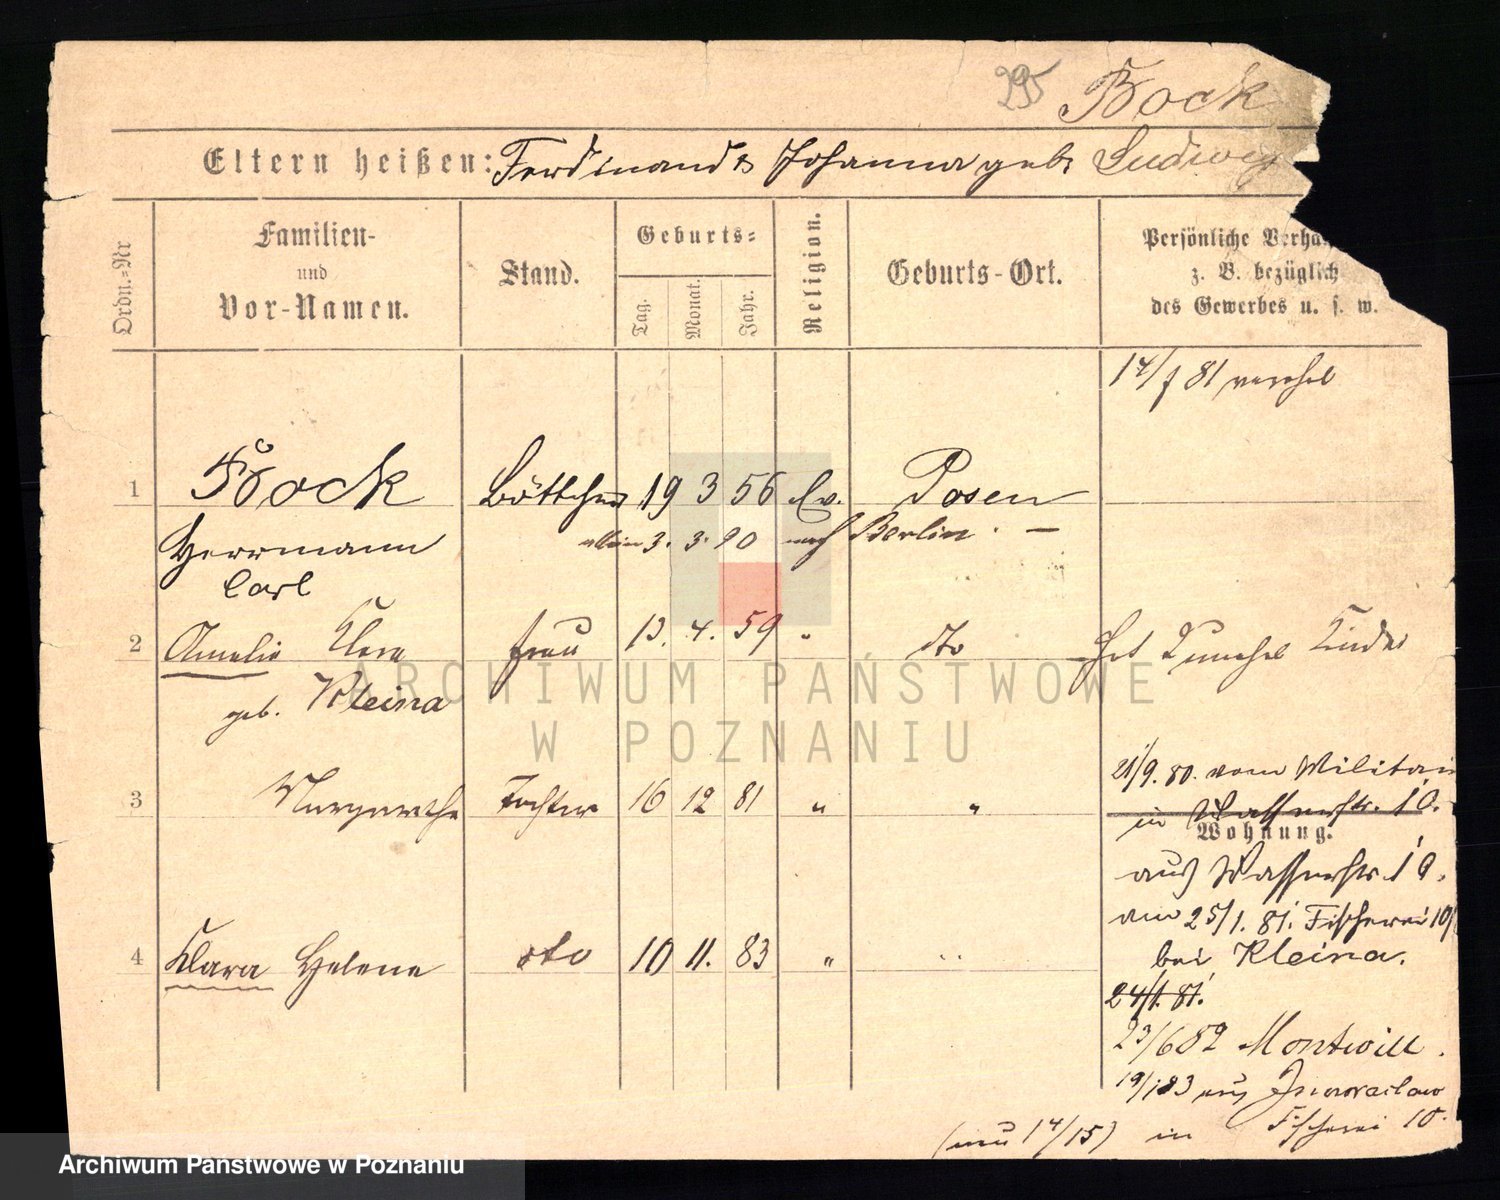 295 Bock
Eltern heißen: Ferdinand & Johanna geb. Ludwig
Ordn.=Nr
Familien-
und
Vor-Namen.
Stand.
Geburts=
Tag.
Monat.
Jahr.
Religion.
Geburts-Ort.
Persönliche Verha
z. B. bezüglich
des Gewerbes u. s. w.
14/7 81 verehel
1 Bock Böttcher 19 3 56 Ev. Posen
Herrmann allein 3. 3. 90 nach Berlin. —
Carl
2 Amelie Klara Frau 13. 4. 59 " dto
hat Kinder
geb. Kleina
3 Margarethe Tochter 16 12 81 " "
21/9. 80. vom Militair
in Wasserstr. 10.
Wohnung.
aus Wasserstr. 10.
am 25/1. 81. Fischerei 10/
4 Klara Helene dto 10 11. 83 " "
bei Kleina.
24/1. 81.
23/6 82 Montwill.
19/1 83 aus Inowraclaw
(neu 14/15) in Fischerei 10.
ARCHIWUM PAŃSTWOWE
W POZNANIU
Archiwum Państwowe w Poznaniu